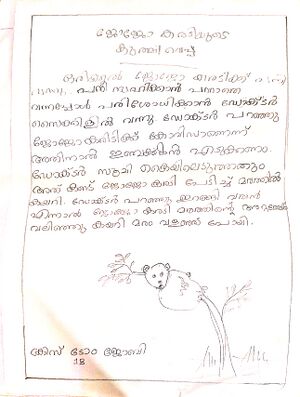 ജോജോ കരടിയുടെ
കുത്തിവെപ്പ്
ഒരിക്കൽ ജോജോ കരടിക്ക് പനി
പനി സഹിക്കാൻ പറ്റാതെ
വന്നപ്പോൾ പരിശോധിക്കാൻ ഡോക്ടർ
സൈക്കിളിൽ വന്നു ഡോക്ടർ പറഞ്ഞു
ജോജോകരടിക്ക് കോവിഡാണെന്ന്
അതിനാൽ ഇഞ്ചക്ഷൻ എടുക്കണം.
ഡോക്ടർ സൂചി കൈയിലെടുത്തതും
അത് കണ്ട് ജോജോ കരടി പേടിച്ച് മരത്തിൽ
കയറി. ഡോക്ടർ പറഞ്ഞു ഇറങ്ങി വരാൻ
എന്നാൽ ജോജോ കരടി മരത്തിന്റെ
വലിഞ്ഞു കയറി മരം വളഞ്ഞ് പോയി.
ക്രിസ് ടോം ജോബി
1B